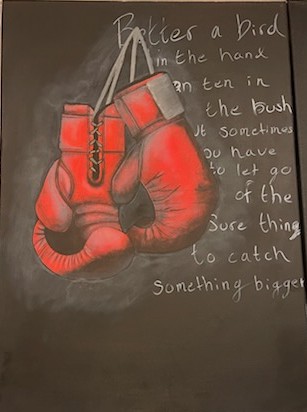 Better a bird
in the hand
an ten in
the bush
It sometimes
ou have
to let go
of the
Sure thing
to catch
something bigger